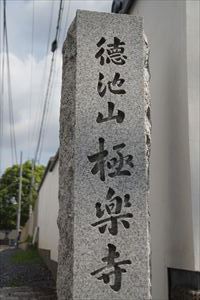 徳池山極楽寺